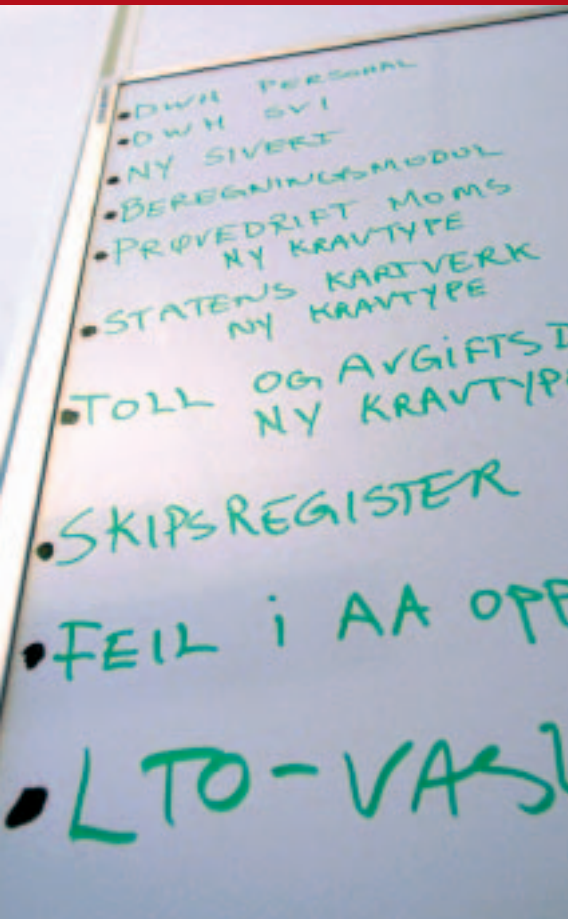 • DWH PERSONAL
• DWH SVI
• NY SIVERT
• BEREGNINGSMODUL
• PRØVEDRIFT MOMS
NY KRAVTYPE
• STATENS KARTVERK
NY KRAVTYPE
• TOLL OG AVGIFTSD
NY KRAVTYPE
• SKIPSREGISTER
• FEIL i AA OPP
• LTO-VAS